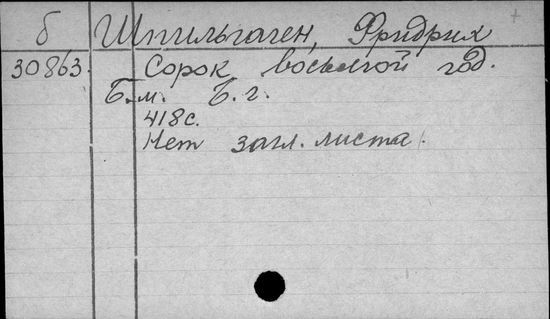 б Шпильгаген, Фридрих
30863. Сорок восьмой год.
Б.м. Б.г.
418с.
Нет загл. листа.